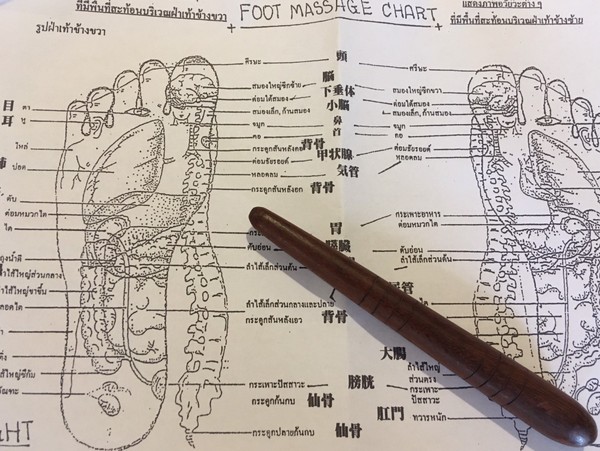 ที่มีพื้นที่สะท้อนบริเวณฝ่าเท้าข้างขวา
FOOT MASSAGE CHART
แสดงภาพอวัยวะต่าง ๆ
ที่มีพื้นที่สะท้อนบริเวณฝ่าเท้าข้างซ้าย
รูปฝ่าเท้าข้างขวา
ศีรษะ 頭 ศรีษะ
脳
สมองใหญ่ซีกซ้าย 下垂体 สมองใหญ่ซีกขวา
目 ตา ต่อมใต้สมอง 小脳 ต่อมใต้สมอง
耳 สมองเล็ก, ก้านสมอง สมองเล็ก, ก้านสมอง
จมูก 鼻 จมูก
คอ 首 คอ
ไหล่ กระดูกสันหลังคอ 背骨 ต่อมธัยรอยด์
ต่อมธัยรอยด์ 甲状腺 หลอดลม
肺 ปอด หลอดลม 気管
ตับ กระดูกสันหลังอก 背骨
ต่อมหมวกไต กระเพาะอาหาร
ไต 胃 ต่อมหมวกไต
ถุงน้ำดี ตับอ่อน 膵臓 ตับอ่อน
ลำไส้ใหญ่ส่วนกลาง ลำไส้เล็กส่วนต้น ลำไส้เล็กส่วนต้น
ลำไส้ใหญ่ขาขึ้น 尿管
ลำไส้เล็กส่วนกลางและปลาย
กระดูกสันหลังเอว 背骨
大腸 ลำไส้ใหญ่
ส่วนตรง
กระเพาะปัสสาวะ 膀胱 กระเพาะ
ปัสสาวะ
กระดูกก้นกบ 仙骨 肛門 ทวารหนัก
กระดูกปลายก้นกบ 仙骨
GHT